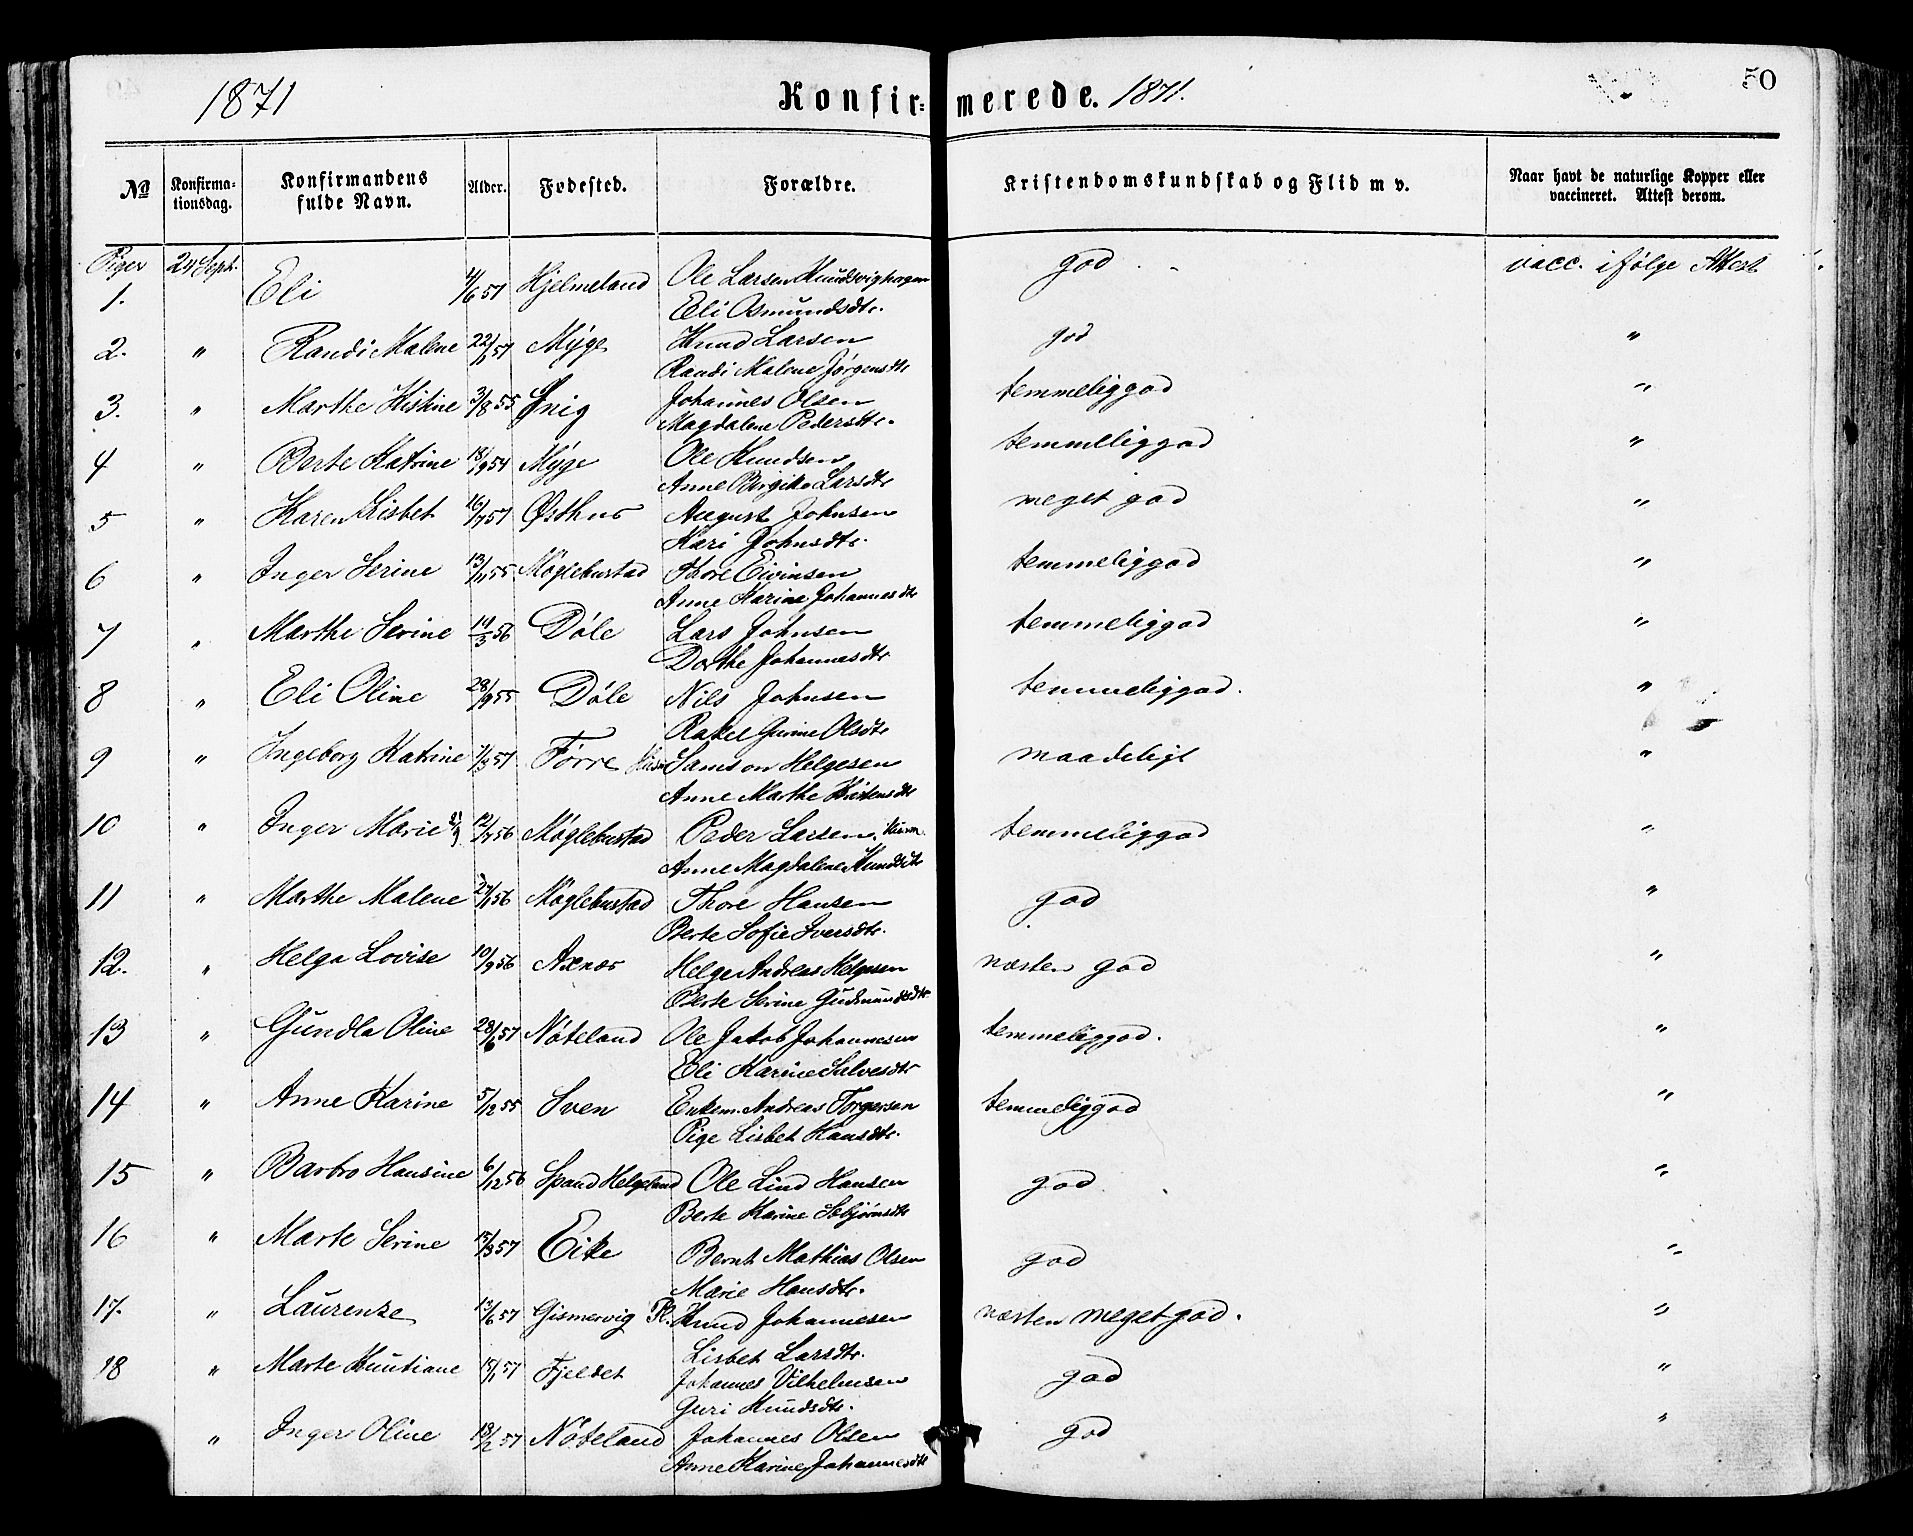 1871 Konfir-merede. 1871. 50
№ Konfirma-tionsdag. Konfirmandens fulde Navn. Alder. Fødested. Forældre. Kristendomskundskab og Flid m v. Naar havt de naturlige Kopper eller vaccineret. Attest derom.
Piger 24 Sept.
1. Eli 4/6 57 Hjelmeland Ole Larsen god vacc. ifølge Attest
Eli Osmundsdtr.
2. " Randi Malene 22/1 57 Myge Knud Larsen god "
Randi Malene Jørgensdtr
3. " Marthe Kistine 3/8 55 Johannes Olsen temmeliggod "
Magdalene Pedersdtr.
4 " Berte Katrine 18/9 54 Myge Ole Knudsen temmeliggod "
Anne Birgitte Larsdtr
5 " Karen Lisbet 16/7 57 Østhus August Johnsen meget god "
Kari Johnsdtr.
6 " Inger Serine 13/11 55 Møglebustad Thore Eivinsen temmeliggod "
Anne Karine Johannesdtr
7 " Marthe Serine 11/3 56 Døle Lars Johnsen temmeliggod "
Dorthe Johannesdtr
8 " Eli Oline 28/9 55 Døle Nils Johnsen temmeliggod. "
Rakel Gurine Olsdtr
9 " Ingeborg Katrine 7/3 57 Førre Samson Helgesen maadeligt "
Anne Marthe
10 " Inger Marie 12/7 56 Møglebustad Peder Larsen temmeliggod "
Anne Magdalene Knudsdtr
11 " Marthe Malene 27/11 56 Møglebustad Thore Hansen god "
Berte Sofie Iversdtr.
12. " Helga Lovise 10/9 56 Axnes Helge Andreas Helgesen næsten god "
Berte Serine Gudmundsdtr
13 " Gundla Oline 28/6 57 Nøteland Ole Jakob Johannesen temmeliggod. "
Eli Karine Salvesdtr
14 " Anne Karine 5/12 55 Sven Enkem. Andreas Torgersen temmeliggod "
Pige Lisbet Hansdtr.
15 " Barbro Hansine 6/12 56 Spand Helgeland Ole Lind Hansen god "
Berte Karine Sebjørnsdtr
16 " Marte Serine 15/3 57 Eike Bernt Mathias Olsen god "
Marie Hansdtr.
17. " Laurenze 13/6 57 Gismervig Pl. Knud Johannesen næsten meget god. "
Lisbet Larsdtr.
18 " Marte Knutiane 15/1 57 Fjeldet Johannes Vilhelmsen god "
Guri Knudsdtr.
" Inger Oline 18/2 57 Nøteland Johannes Olsen god "
Anne Karine Johannesdtr